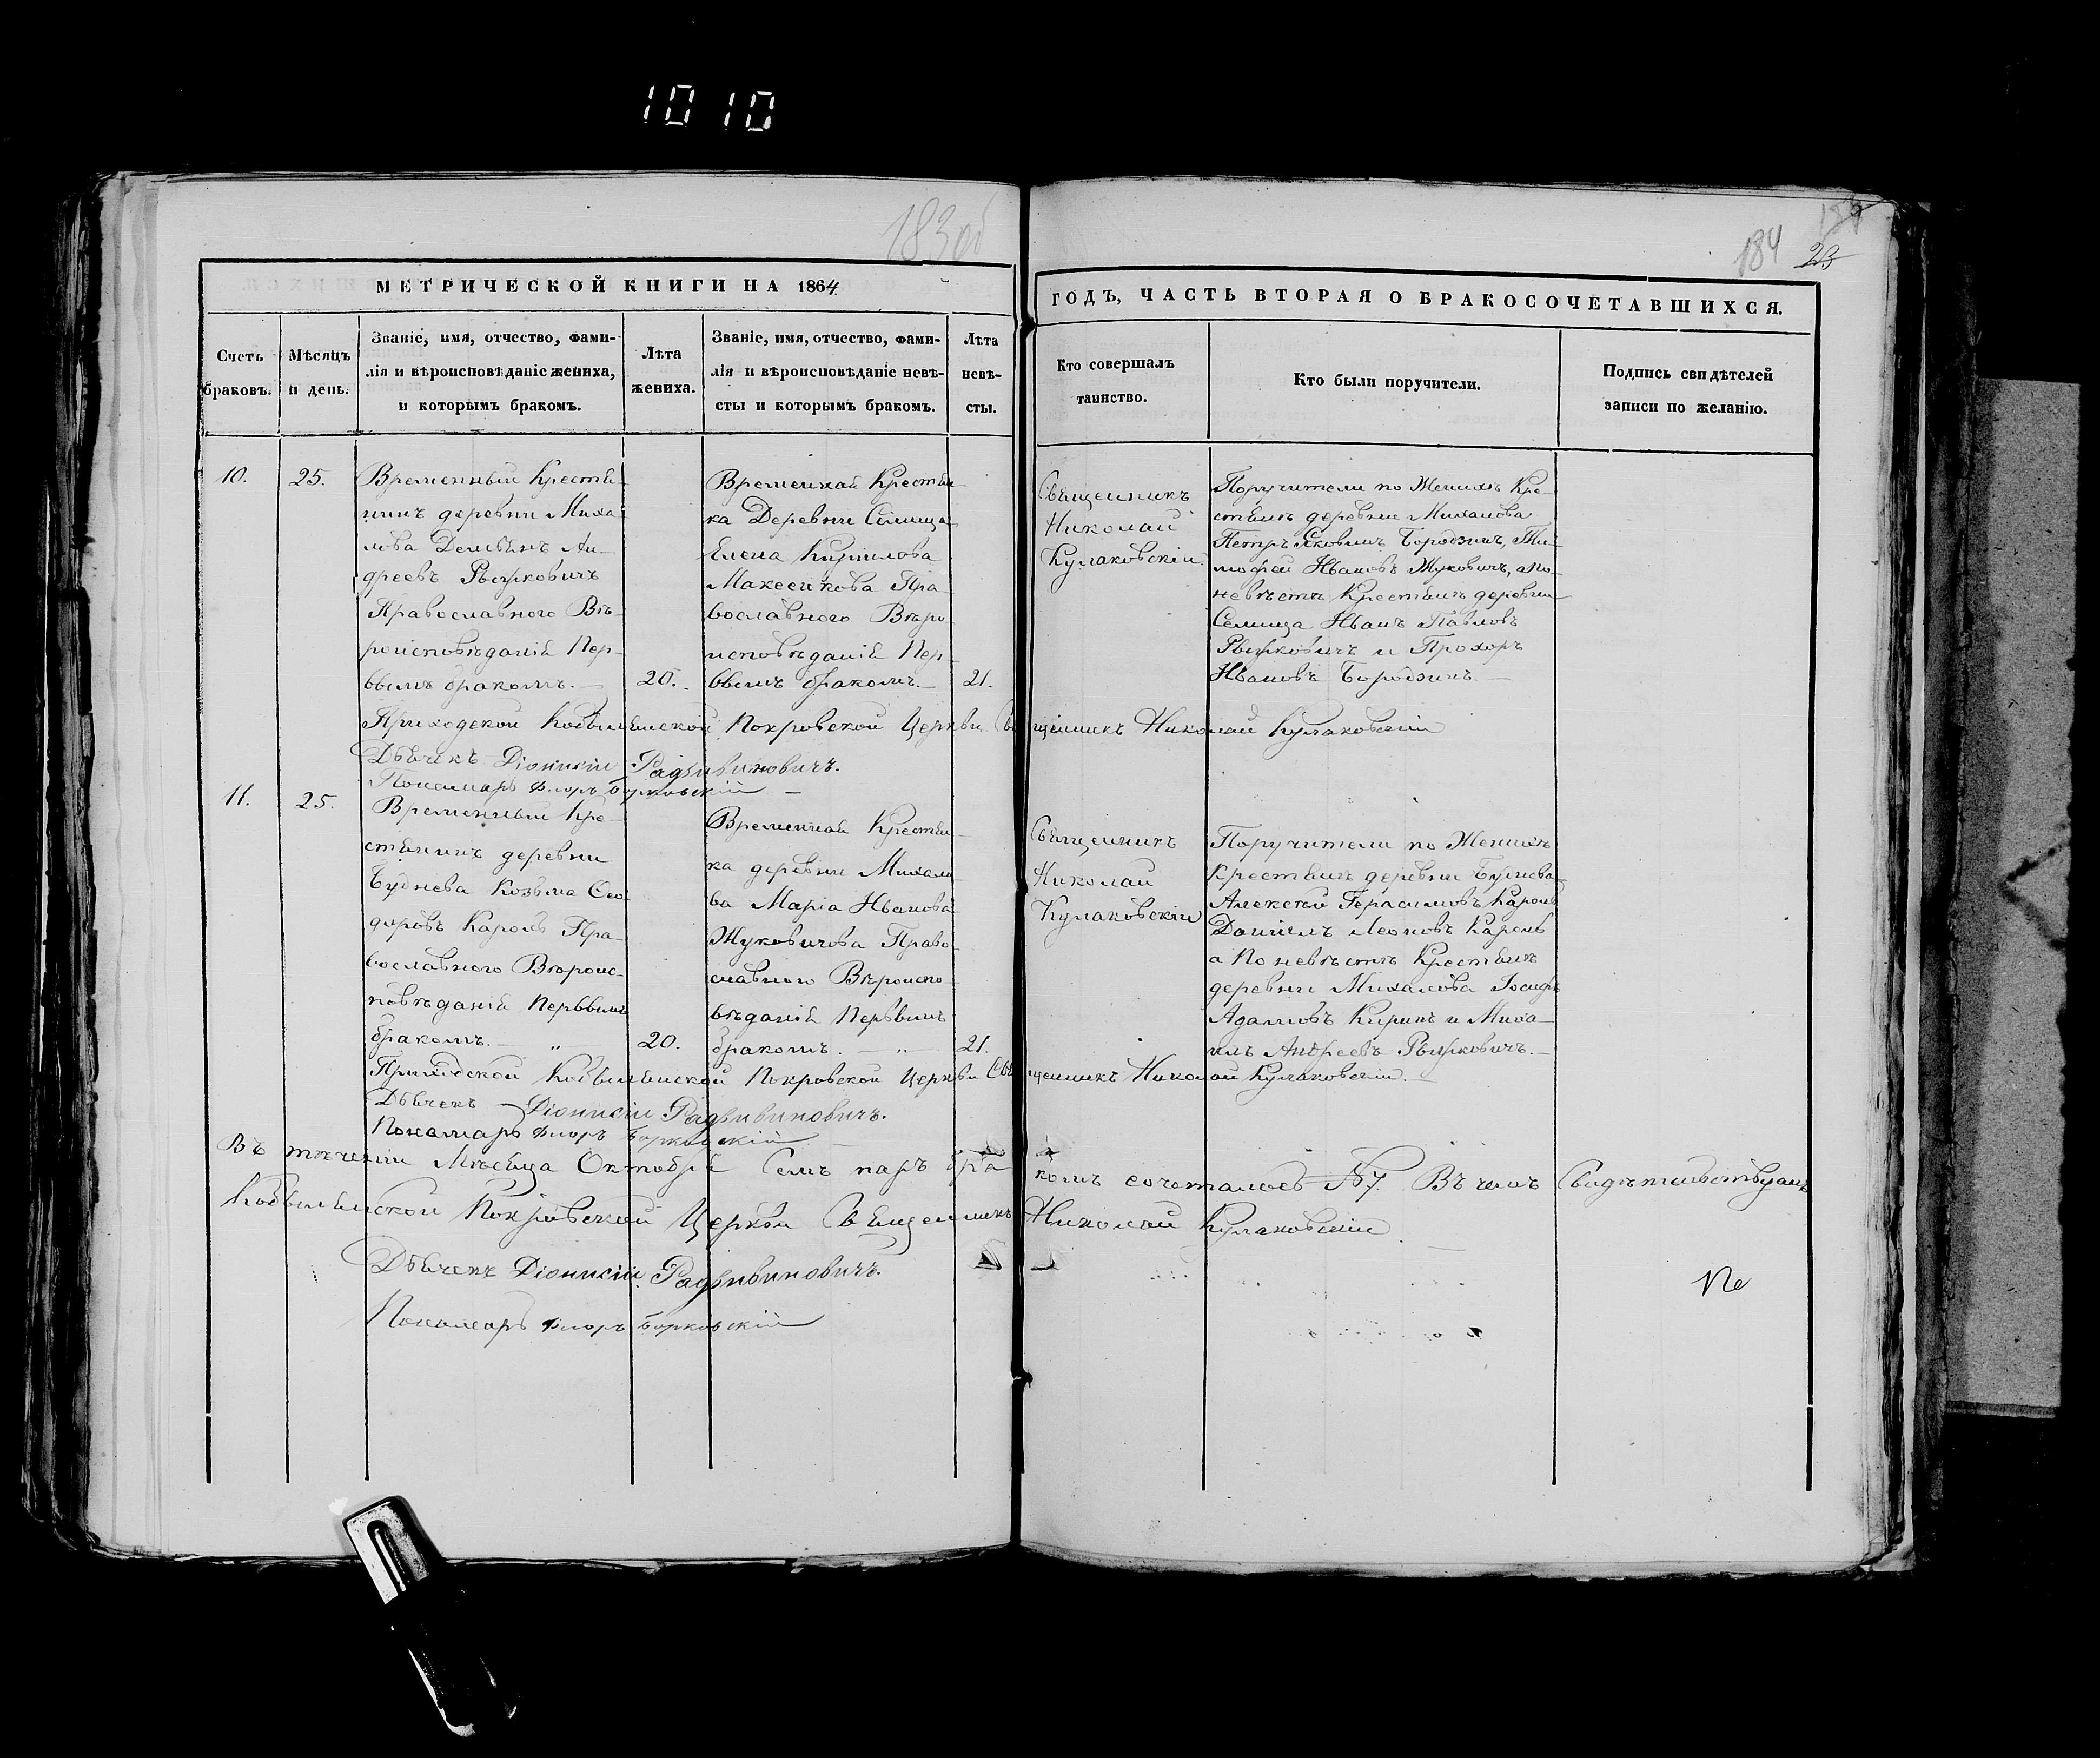 10 10
183об
184
23
МЕТРИЧЕСКОЙ КНИГИ НА 1864
ГОДЪ, ЧАСТЬ ВТОРАЯ О БРАКОСОЧЕТАВШИХСЯ.
Счетъ браковъ.
Мѣсяцъ и день.
Званіе, имя, отчество, фами-
лія и вѣроисповѣданіе жениха,
и которымъ бракомъ.
Лѣта жениха.
Званіе, имя, отчество, фами-
лія и вѣроисповѣданіе невѣ-
сты и которымъ бракомъ.
Лѣта невѣ-
сты.
Кто совершалъ
таинство.
Кто были поручители.
Подпись свидѣтелей
записи по желанію.
10.
25.
Временный Крестья-
нинъ деревни Миха-
лова Демьянъ Ан-
дреевъ Рычковичъ
Православнаго Вѣ-
роисповѣданія Пер-
ввымъ бракомъ.
20.
Временная Крестьян-
ка Деревни Селища
Елена Кирилова
Макеенкова Пра-
вославного Вѣро-
исповѣданія Пер-
ввымъ бракомъ.
21.
Священникъ
Николай
Кулаковскій.
Поручители по Женихѣ Кре-
стьянъ деревни Михалова
Петръ Яковлевъ Бородзичъ, Ти-
мофей Ивановъ Жуковичъ, а по
невѣстѣ Крестьянъ деревни
Селища Иванъ Павловъ
Рычковичъ и Прохоръ
Ивановъ Бородзичъ
Приходской Покровской Церкви Священникъ Николай Кулаковскій
Дьячекъ Діонисій Радзивиновичъ.
Пономарь Флоръ Борковскій
11.
25.
Временный Кре-
стьянинъ деревни
Буднева Козьма Сео-
доровъ Кароль Пра-
вославного Вѣроис-
повѣданія Перввымъ
бракомъ.
20.
Временная Крестьян-
ка деревни Михало-
ва Марія Иванова
Жуковичова Право-
славного Вѣроиспо-
вѣданія Перввымъ
бракомъ.
21.
Священникъ
Николай
Кулаковскій
Поручители по Женихѣ
Крестьянъ деревни Буднева
Алексѣй Герасимовъ Кароль
Даніилъ Леоновъ Кароль
а По невѣстѣ Крестьянъ
деревни Михалова Іосифъ
Адамовъ Киринъ и Миха-
илъ Андреевъ Рычковичъ.
Приходской Покровской Церкви Священникъ Николай Кулаковскій.
Дьячекъ Діонисій Радзивиновичъ.
Пономарь Флоръ Борковскій
Въ теченіи Мѣсяца Октября Семъ паръ бракомъ сочеталось №7. Въ чемъ Свидѣтельствуемъ
Покровской Церкви Священникъ Николай Кулаковскій
Дьячекъ Діонисій Радзивиновичъ.
Пономарь Флоръ Борковскій